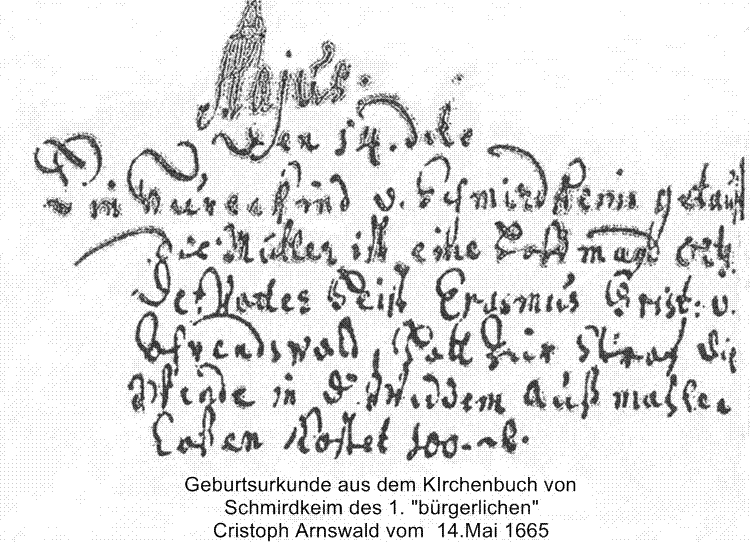 Majus.
Den 14. dito
Ein Hurenkind v. Schmirdkeim getauft
die Mutter ist eine
Der Vater heist Erasmus Crist: v.
hatt zur Straf die
Wende in d. auß mahlen
Laßen Kostet 100
Geburtsurkunde aus dem KIrchenbuch von
Schmirdkeim des 1. "bürgerlichen"
Cristoph Arnswald vom 14.Mai 1665